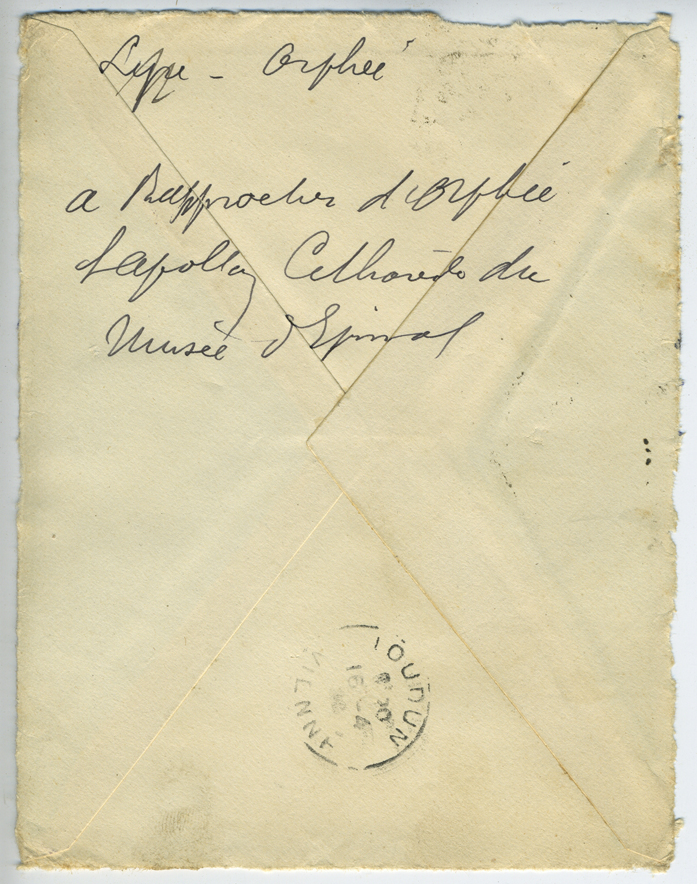 Lyre - Orphée
a Rapprocher d'Orphée
l'apollon Citharède du
Musée d'Epinal
LOUDUN
VIENNE